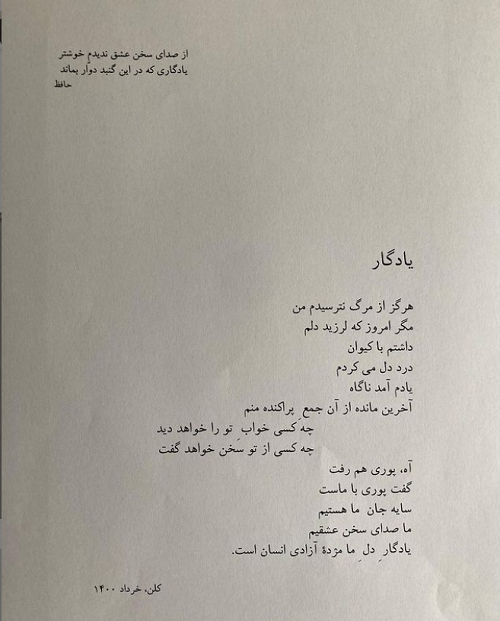 از صدای سخن عشق ندیدم خوشتر
یادگاری که در این گنبد دوّار بماند
حافظ
یادگار
هرگز از مرگ نترسیدم من
مگر امروز که لرزید دلم
داشتم با کیوان
درد دل می کردم
یادم آمد ناگاه
آخرین مانده از آن جمعِ پراکنده منم
چه کسی خوابِ تو را خواهد دید
چه کسی از تو سخن خواهد گفت
آه، پوری هم رفت
گفت پوری با ماست
سایه جان ما هستیم
ما صدای سخن عشقیم
یادگارِ دلِ ما مژدهٔ آزادی انسان است.
کلن، خرداد ۱۴۰۰